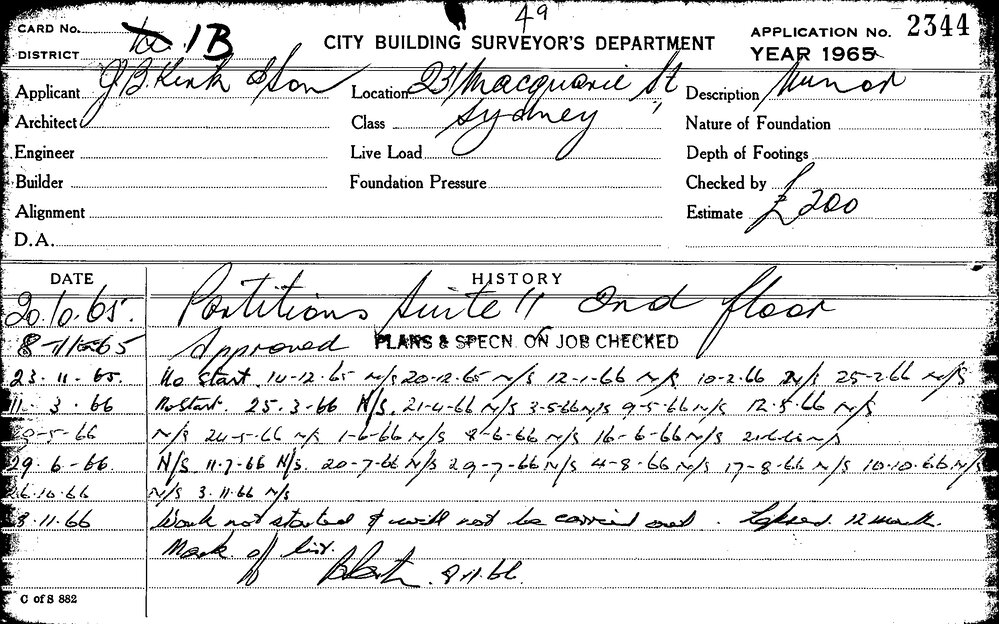 49
CARD No. 1B
CITY BUILDING SURVEYOR'S DEPARTMENT
APPLICATION No. 2344
DISTRICT
YEAR 1965
Applicant J.B. Kirk & Son Location 231 Macquarie St Description Minor
Architect Class Sydney Nature of Foundation
Engineer Live Load Depth of Footings
Builder Foundation Pressure Checked by
Alignment Estimate £200
D.A.
DATE HISTORY
20.10.65. Partitions Suite 11 2nd floor
8-11-65 Approved PLANS & SPECN. ON JOB CHECKED
23.11.65. No start 14-12-65 N/S 20-12-65 N/S 12-1-66 N/S 10-2-66 N/S 25-2-66 N/S
11.3.66 No Start. 25.3-66 N/S. 21-4-66 N/S 3-5-66 N/S 9-5-66 N/S 12.5.66 N/S
20-5-66 N/S 24-5-66 N/S 1-6-66 N/S 8-6-66 N/S 16-6-66 N/S 21-6-66 N/S
29.6-66. N/S 11.7-66 N/S. 20-7-66 N/S 29-7-66 N/S 4-8-66 N/S 17-8-66 N/S 10.10.66 N/S
26.10.66 N/S 3.11.66 N/S
8.11.66 Work not started & will not be carried out. Lapsed. 12 month.
Mark of list.
8.11.66.
C of S 882